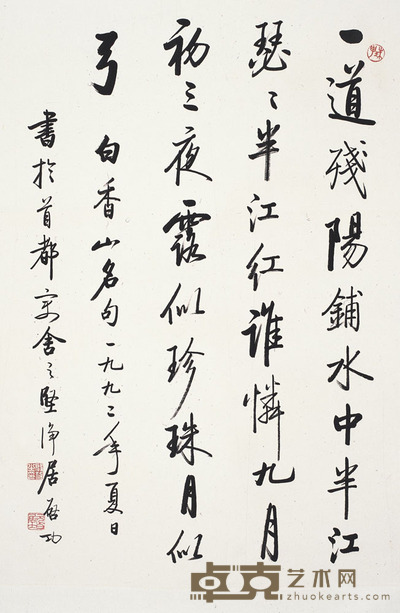 一道殘陽鋪水中半江
瑟〻半江紅誰憐九月
初三夜露似珍珠月似
弓 白香山名句一九九二年夏日
書於首都寓舍之堅淨居啟功
卓克艺术网
www.zhuokearts.com